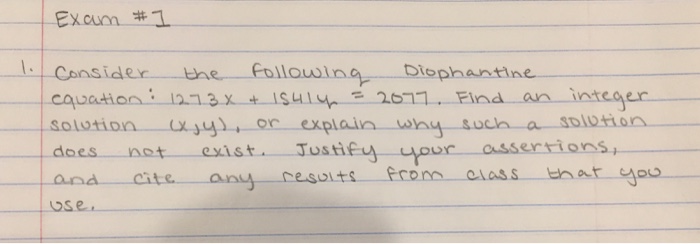 Exam #1
1. Consider the following Diophantine
equation: 1273x + 1541y = 2077. Find an integer
solution (x,y), or explain why such a solution
does not exist. Justify your assertions,
and cite any results from class that you
use.